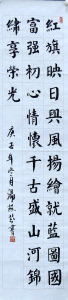 紅旗映日與風揚繪就藍圖國
富强初心情懷千古盛山河錦
繡享榮光
庚子年冬月